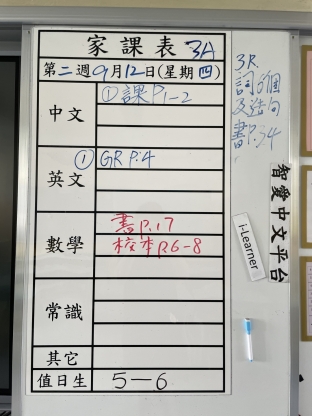 家課表 3A
第二週9月12日(星期四)
中文
①課P.1-2
英文
①GR P.4
數學
書P.17
校本P.6-8
常識
其它
值日生
5—6
3R.
詞6個
及造句
書P.34
智愛中文平台
i-Learner